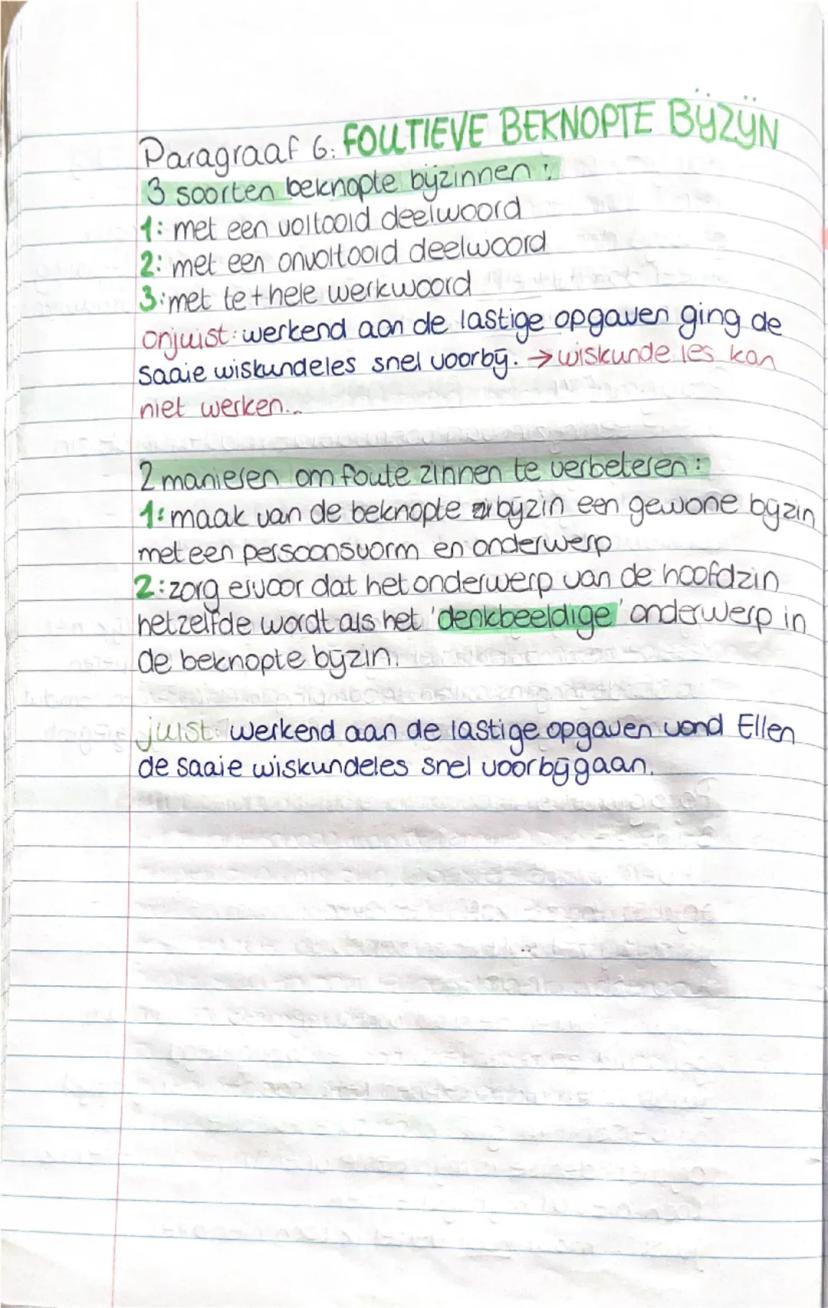 Paragraaf 6: FOUTIEVE BEKNOPTE BIJZIJN
3 soorten beknopte bijzinnen:
1: met een voltooid deelwoord
2: met een onvoltooid deelwoord
3: met te + hele werkwoord
onjuist: werkend aan de lastige opgaven ging de
saaie wiskundeles snel voorbij. → wiskunde les kan
niet werken...
2 manieren om foute zinnen te verbeteren:
1: maak van de beknopte bijzin een gewone bijzin
met een persoonsvorm en onderwerp
2: zorg ervoor dat het onderwerp van de hoofdzin
hetzelfde wordt als het 'denkbeeldige' onderwerp in
de beknopte bijzin.
juist: werkend aan de lastige opgaven vond Ellen
de saaie wiskundeles snel voorbijgaan.